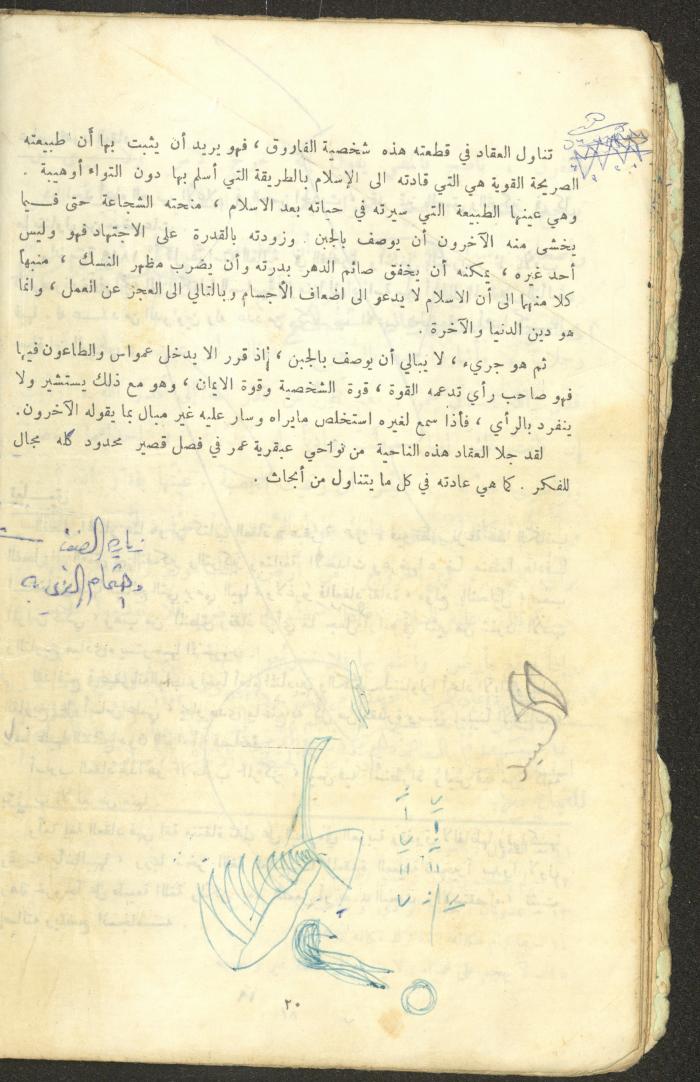 تناول العقاد في قطعته هذه شخصية الفاروق ، فهو يريد أن يثبت بها أن طبيعته
الصريحة القوية هي التي قادته الى الإسلام بالطريقة التي أسلم بها دون التواء أوهيبة .
وهي عينها الطبيعة التي سيرته في حياته بعد الاسلام ، منحته الشجاعة حتى فـيما
يخشى منه الآخرون أن يوصف بالجبن . وزودته بالقدرة على الاجتهاد فهو وليس
أحد غيره ، يمكنه أن يخفق صائم الدهر بدرته وأن يضرب مظهر النسك ، منبهاً
كلا منهما الى أن الاسلام لا يدعو الى اضعاف الأجسام وبالتالي الى العجز عن العمل ، وانما
هو دين الدنيا والآخرة .
ثم هو جريء ، لا يبالي أن يوصف بالجبن ، إذ قرر الا يدخل عمواس والطاعون فيها
فهو صاحب رأي تدعمه القوة ، قوة الشخصية وقوة الايمان ، وهو مع ذلك يستشير ولا
ينفرد بالرأي ، فأذا سمع لغيره استخلص مايراه وسار عليه غير مبال بما يقوله الآخرون.
لقد جلا العقاد هذه الناحية من نواحي عبقرية عمر في فصل قصير محدود كله مجال
للفكر . كما هي عادته في كل ما يتناول من أبحاث .
٢٠